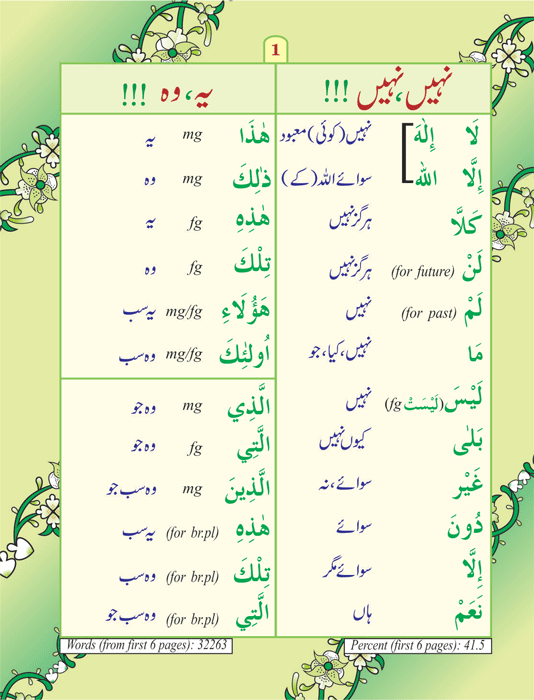 1
نہیں، نہیں !!!
لَا إِلٰهَ نہیں (کوئی) معبود
إِلَّا اللّٰه سوائے اللہ (کے)
كَلَّا ہرگز نہیں
لَنْ (for future) ہرگز نہیں
لَمْ (for past) نہیں
مَا نہیں، کیا، جو
لَيْسَ (لَيْسَتْ fg) نہیں
بَلٰى کیوں نہیں
غَيْر سوائے، نہ
دُونَ سوائے
إِلَّا سوائے مگر
نَعَمْ ہاں
Percent (first 6 pages): 41.5
یہ، وہ !!!
هٰذَا mg یہ
ذٰلِكَ mg وہ
هٰذِهِ fg یہ
تِلْكَ fg وہ
هَؤُلَاءِ mg/fg یہ سب
أُولٰئِكَ mg/fg وہ سب
الَّذِي mg وہ جو
الَّتِي fg وہ جو
الَّذِينَ mg وہ سب جو
هٰذِهِ (for br.pl) یہ سب
تِلْكَ (for br.pl) وہ سب
الَّتِي (for br.pl) وہ سب جو
Words (from first 6 pages): 32263